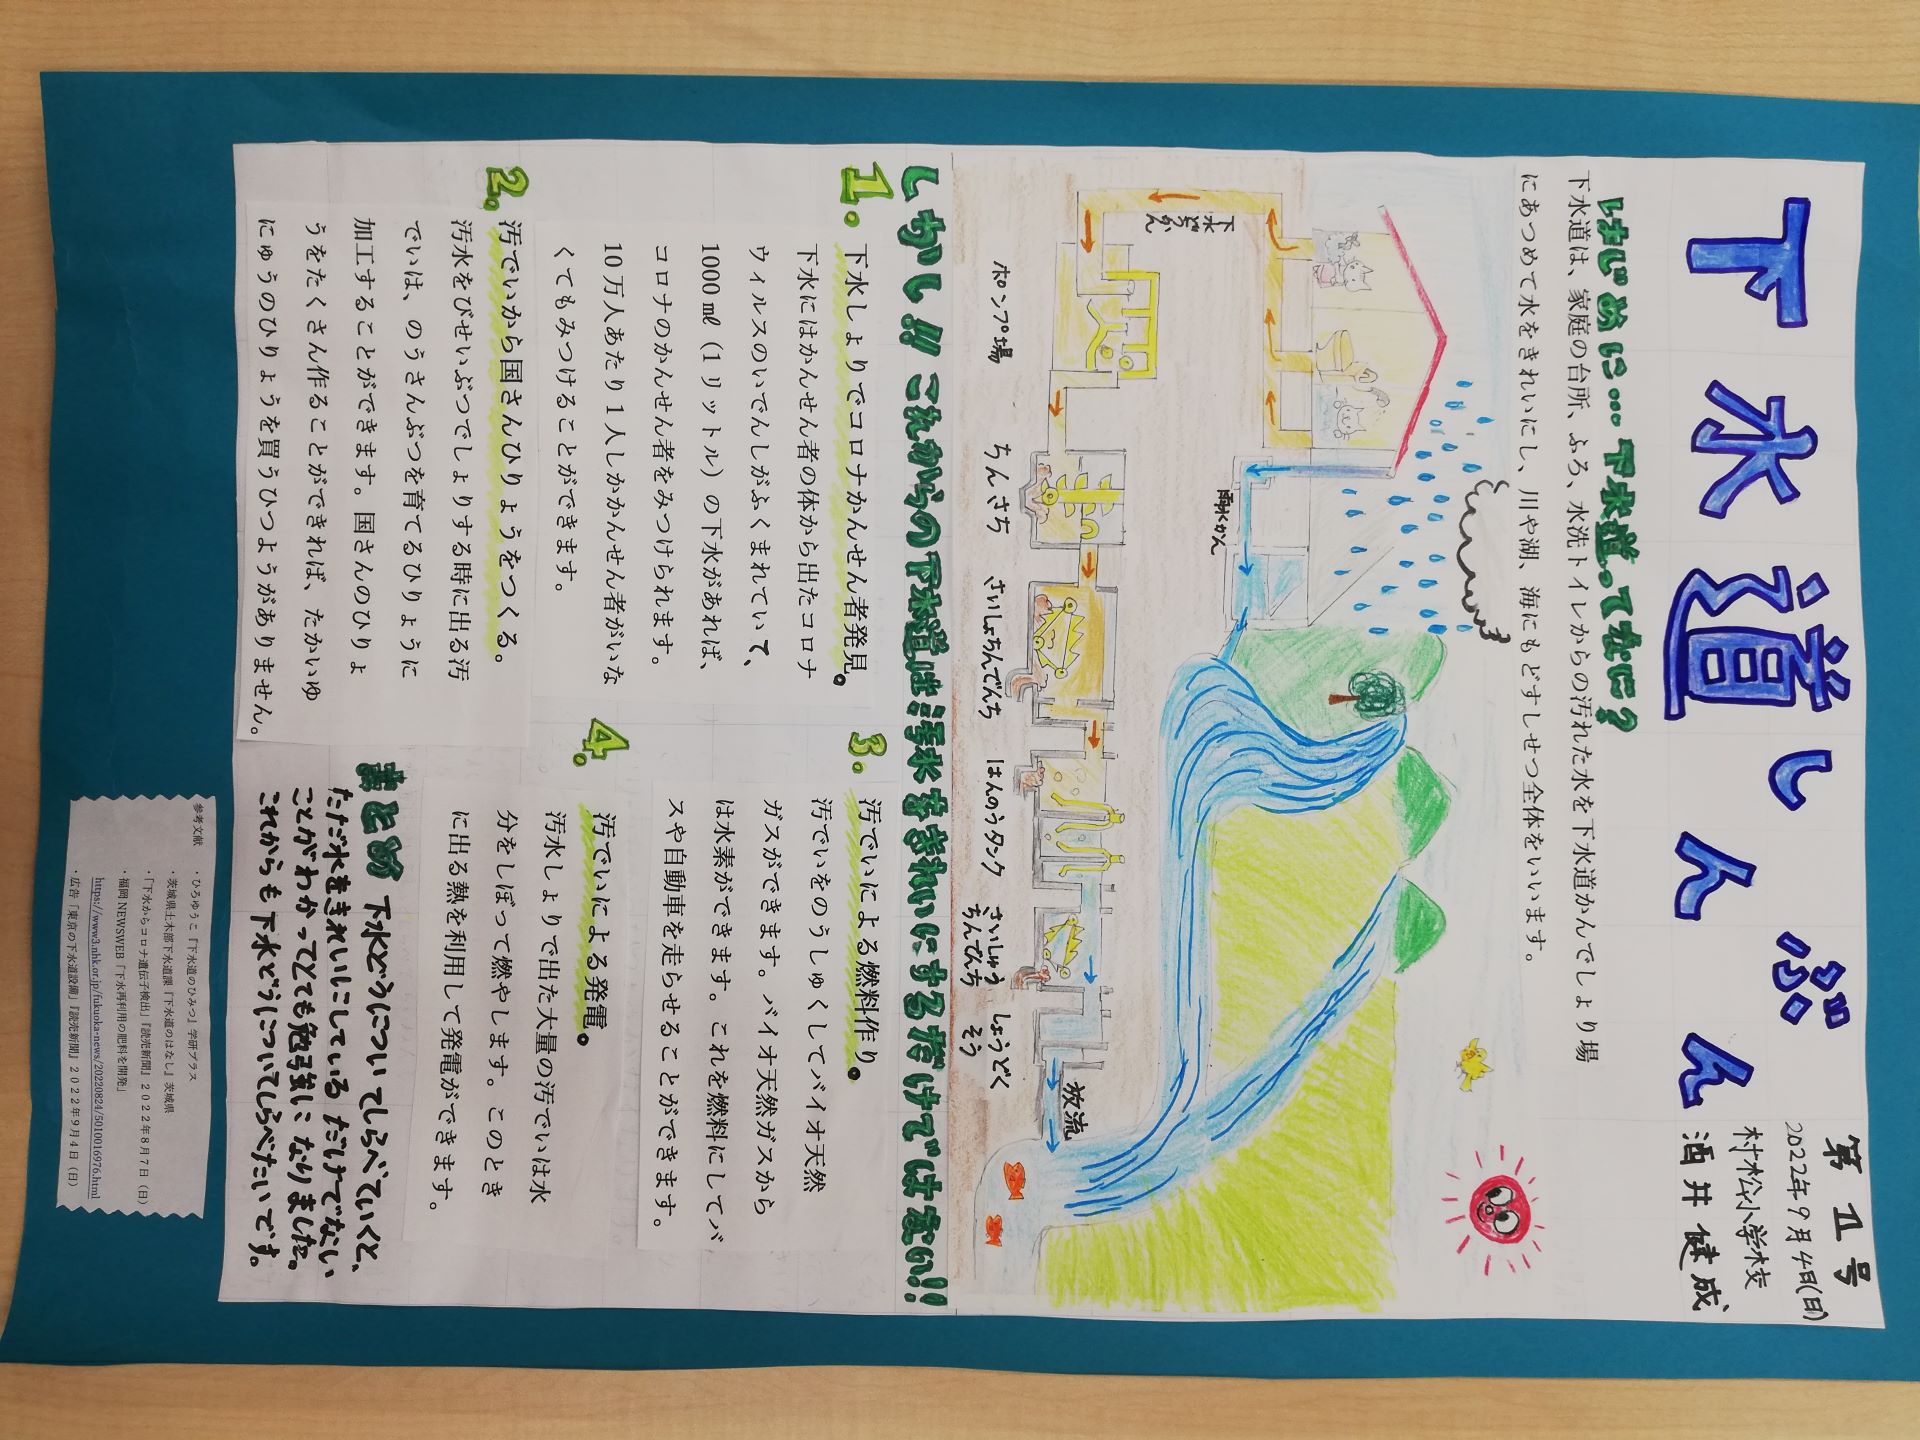 下水道しんぶん
第1号
2022年9月4日(日)
村松小学校
酒井健成
はじめに…下水道ってなに?
下水道は、家庭の台所、ふろ、水洗トイレからの汚れた水を下水道かんでしょり場
にあつめて水をきれいにし、川や湖、海にもどすしせつ全体をいいます。
雨水かん
下水どうかん
ポンプ場
ちんさち
さいしょちんでんち
はんのうタンク
さいしゅう
ちんでんち
しょうどく
そう
放流
しかし!!これからの下水道は汚水をきれいにするだけではない!!
1.下水しょりでコロナかんせん者発見。
下水にはかんせん者の体から出たコロナ
ウィルスのいでんしがふくまれていて、
1000㎖(1リットル)の下水があれば、
コロナのかんせん者をみつけられます。
10万人あたり1人しかかんせん者がいな
くてもみつけることができます。
2.汚でいから国さんひりょうをつくる。
汚水をびせいぶつでしょりする時に出る汚
でいは、のうさんぶつを育てるひりょうに
加工することができます。国さんのひりょ
うをたくさん作ることができれば、たかいゆ
にゅうのひりょうを買うひつようがありません。
3.汚でいによる燃料作り。
汚でいをのうしゅくしてバイオ天然
ガスができます。バイオ天然ガスから
は水素ができます。これを燃料にしてバ
スや自動車を走らせることができます。
4.汚でいによる発電。
汚水しょりで出た大量の汚でいは水
分をしぼって燃やします。このとき
に出る熱を利用して発電ができます。
まとめ 下水どうについてしらべていくと、
ただ水をきれいにしているだけでない
ことがわかってとても勉強になりました。
これからも下水どうについてしらべたいです。
参考文献
・ひろゆうこ『下水道のひみつ』学研プラス
・茨城県土木部下水道課『下水道のはなし』茨城県
・「下水からコロナ遺伝子検出」『読売新聞』2022年8月7日(日)
・福岡 NEWSWEB「下水再利用の肥料を開発」
https://www3.nhk.or.jp/fukuoka-news/20220824/5010016976.html
・広告「東京の下水道設備」『読売新聞』2022年9月4日(日)